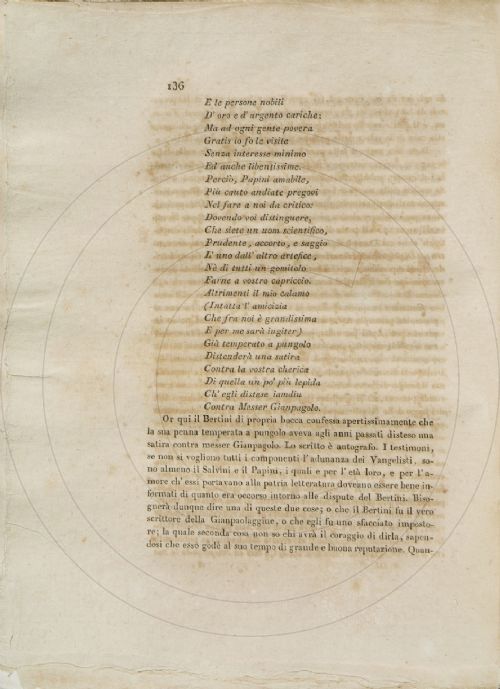 136
E le persone nobili
D' oro e d' argento cariche:
Ma ad ogni gente povera
Gratis io fo le visite
Senza interesse minimo
Ed anche libentissime.
Perciò, Papini amabile,
Più cauto andiate pregovi
Nel fare a noi da critico:
Dovendo voi distinguere,
Che siete un uom scientifico,
Prudente, accorto, e saggio
L' uno dall' altro artefice,
Nè di tutti un gomitolo
Farne a vostro capriccio.
Altrimenti il mio calamo
(Intatta l' amicizia
Che fra noi è grandissima
E per me sarà ingiter)
Già temperato a pungolo
Distenderà una satira
Contra la vostra cherica
Di quella un po' più lepida
Ch' egli distese iamdiu
Contra Messer Gianpagolo.
Or qui il Bertini di propria bocca confessa apertissimamente che
la sua penna temperata a pungolo aveva agli anni passati disteso una
satira contra messer Gianpagolo. Lo scritto è autografo. I testimoni,
se non si vogliono tutti i componenti l' adunanza dei Vangelisti, so-
no almeno il Salvini e il Papini, i quali e per l' età loro, e per l' a-
more ch' essi portavano alla patria letteratura doveano essere bene in-
formati di quanto era occorso intorno alle dispute del Bertini. Biso-
gnerà dunque dire una di queste due cose; o che il Bertini fu il vero
scrittore della Gianpaolaggine, o che egli fu uno sfacciato imposto-
re; la quale seconda cosa non so chi avrà il coraggio di dirla, sapen-
dosi che esso godè al suo tempo di grande e buona reputazione. Quan-